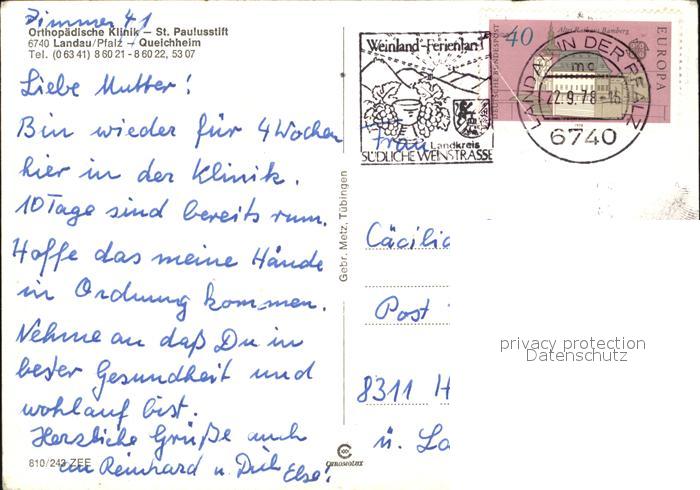 Zimmer 41
Orthopädische Klinik — St. Paulusstift
6740 Landau/Pfalz — Queichheim
Tel. (0 63 41) 8 60 21 - 8 60 22, 53 07
Liebe Mutter!
Bin wieder für 4 Wochen
hier in der Klinik.
10 Tage sind bereits rum.
Hoffe das meine Hände
in Ordnung kommen.
Nehme an daß Du in
bester Gesundheit und
wohlauf bist.
Herzliche Grüße auch
an Reinhard u. Else!
810/243 ZEE
Gebr. Metz, Tübingen
Weinland-Ferienland
Landkreis
SÜDLICHE WEINSTRASSE
DEUTSCHE BUNDESPOST
40
Altes Rathaus Bamberg
EUROPA
LANDAU IN DER PFALZ
mc
22.9.78-15
6740
Frau
Cäcilia
Post
8311 H
ü. La
privacy protection
Datenschutz